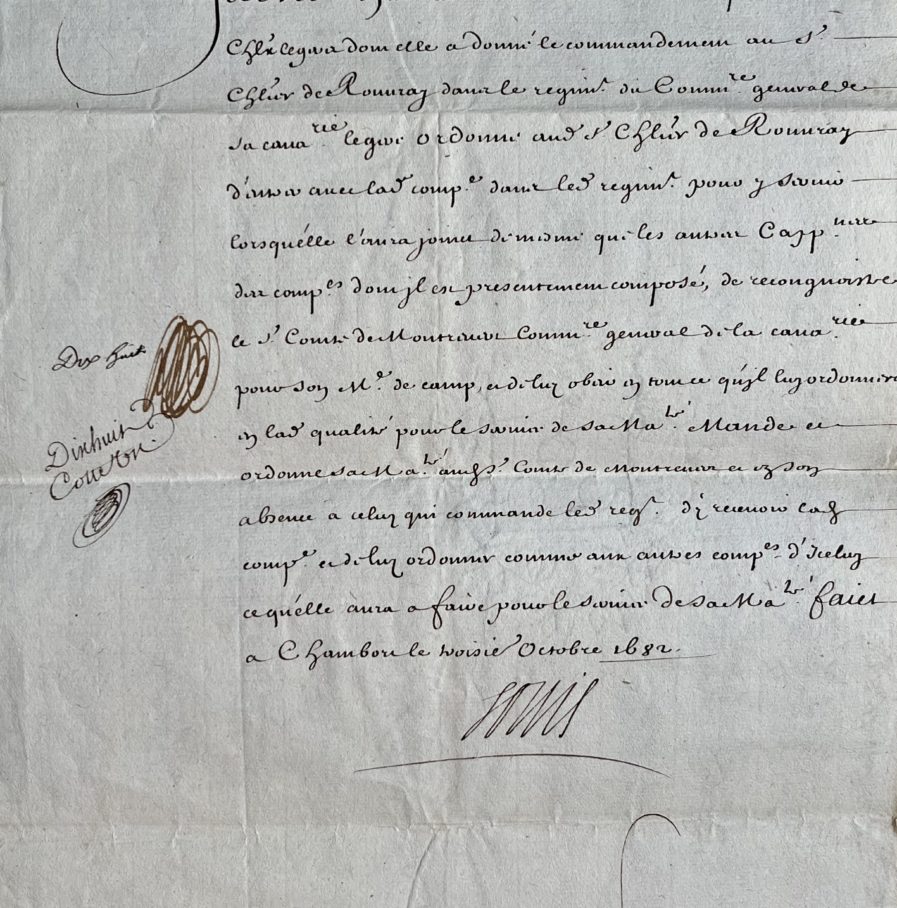 Chl.rs legers dont elle a donné le commandement au S.r
Chl.er de Rouuray dans le regim.t du Comm.re general de
sa caua.rie leq.l ordonne aud S.r Chl.er de Rouuray
d'entrer auec lad comp.e dans led regim.t pour y seruir
lorsqu'elle l'aura joinct de mesme que les autres
des comp.es dont jl est presentement composé, de recongnoistre
le S.r Comte de Montreuel Comm.re general de la caua.rie
pour son M.e de camp, et de luy obeir en tout ce qu'jl luy ordonnera
en lad qualité pour le seruice de sa Ma.té Mande et
ordonne sa Ma.té aud S.r Comte de Montreuel et en son
absence a celuy qui commande led reg.t d'y receuoir lad
comp.e et de luy ordonner comme aux autres comp.es d'Iceluy
ce qu'elle aura a faire pour le seruice de sa Ma.té faict
a Chambort le troisie Octobre 1682.
Louis
Dix huit
Dixhuit